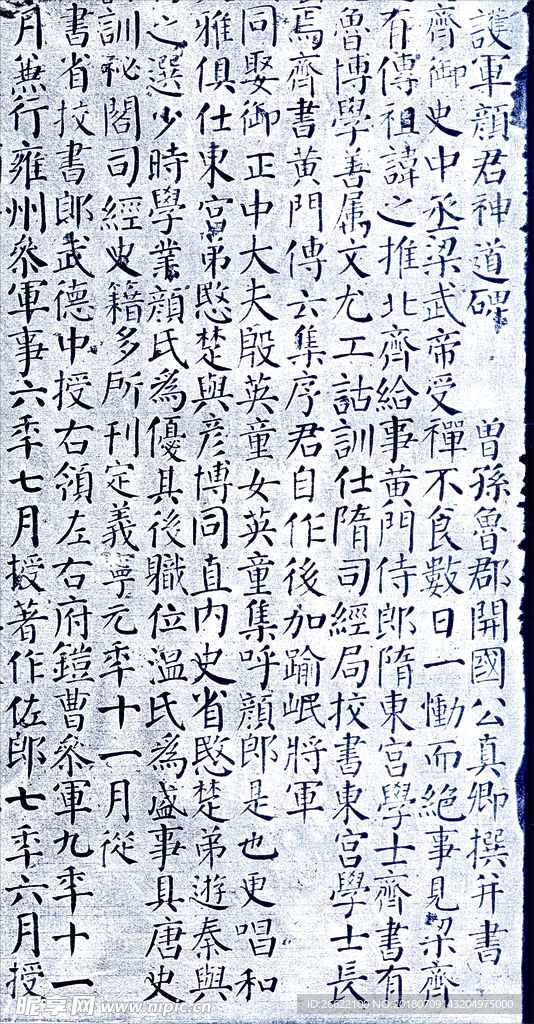 護軍顏君神道碑 曾孫魯郡開國公真卿撰并書
齊御史中丞梁武帝受禪不食數日一慟而絕事見梁齊
有傳祖諱之推北齊給事黃門侍郎隋東宮學士齊書有
魯博學善屬文尤工詁訓仕隋司經局挍書東宮學士長
焉齊書黃門傳云集序君自作後加踰岷將軍
同娶御正中大夫殷英童女英童集呼顏郎是也更唱和
雅俱仕東宮弟愍楚與彦博同直内史省愍楚弟遊秦與
之選少時學業顏氏為優其後職位溫氏為盛事具唐史
訓祕閣司經史籍多所刊定義寧元年十一月從
書省挍書郎武德中授右領左右府鎧曹叅軍九年十一
月兼行雍州叅軍事六年七月授著作佐郎七年六月授
昵享网 www.nipic.cn
ID:26622100 NO:20180709143204975000